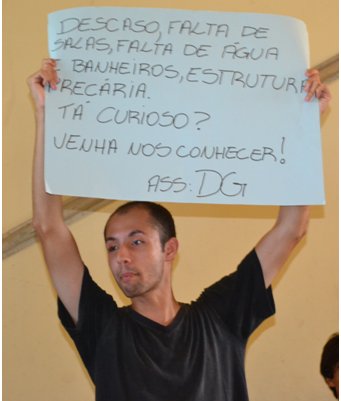 DESCASO, FALTA DE
SALAS, FALTA DE ÁGUA
BANHEIROS, ESTRUTURA
PRECÁRIA.
TÁ CURIOSO?
VENHA NOS CONHECER!
ASS: DG